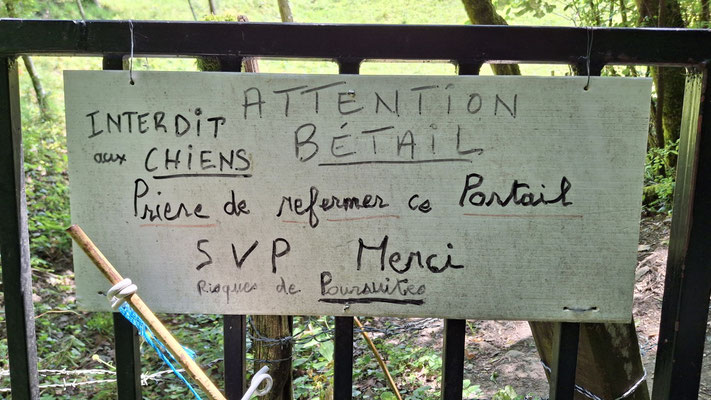 ATTENTION
BÉTAIL
INTERDIT
aux CHIENS
Prière de refermer ce Portail
SVP Merci
Risques de Poursuites